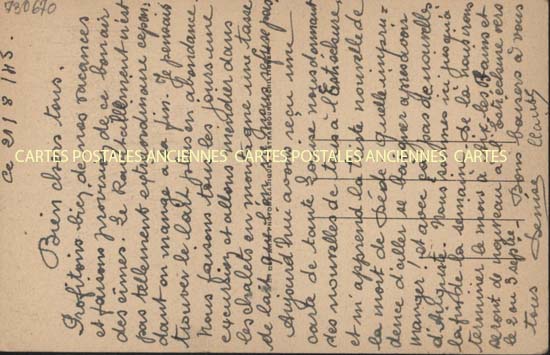 730670
Ce 21/8/45.
Bien chers tous,
Profitons bien de nos vacances
et faisons provision de ce bon air
des cimes. Le Ravitaillement n'est
pas tellement extraordinaire cepen-
dant on mange à sa fin. Je pensais
trouver le lait par ici en abondance.
Nous faisons tous les jours une
excursion et allons mendier dans
les chalets en montagne une tasse
de lait que l'on nous refuse pas
Aujourd'hui avons reçu une
carte de tante Louise nous donnant
des nouvelles de tous à l'Estréchure,
et m'apprend la triste nouvelle de
la mort de Dédé quelle impru-
dence d'aller se baigner après avoir
mangé! et avec ça pas de nouvelles
d'Auguste. Nous sommes ici jusqu'à
la fin de la semaine, de là, irons
terminer le mois à les Bains et
seront de nouveau à Estréchure vers
le 2 ou 3 septbre Bons baisers à vous
tous Denise Claude
CARTES POSTALES ANCIENNES
CARTES POSTALES ANCIENNES
CARTES POSTALES ANCIENNES